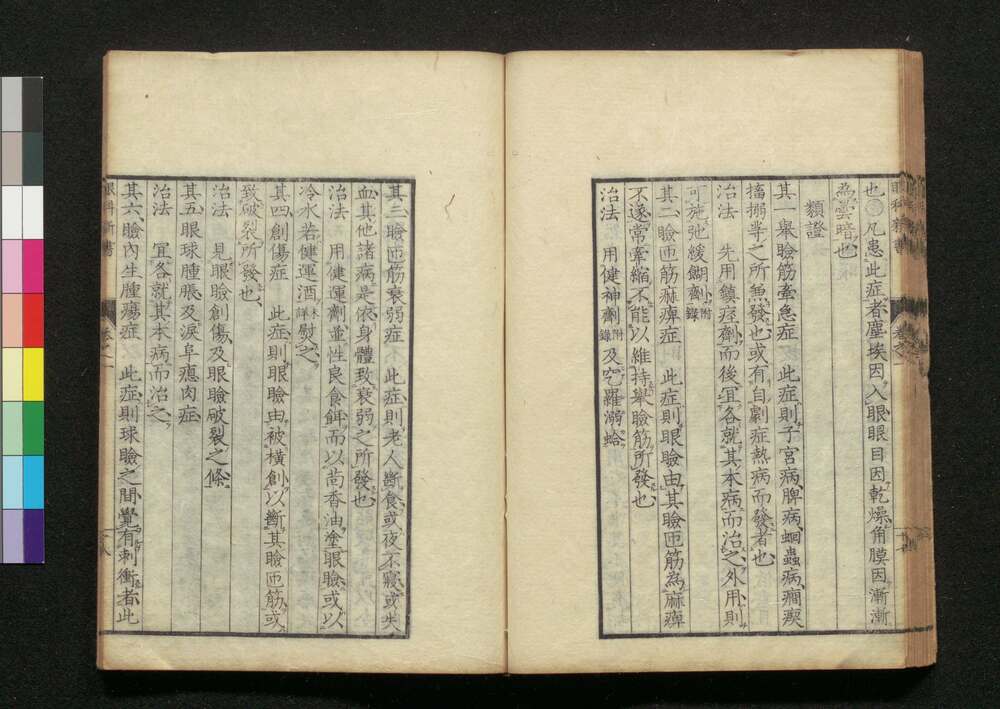 也○凡患此症者塵埃因入眼眼目因乾燥角膜因漸漸
為雲暗也
類證
其一擧瞼筋牽急症 此症則子宮病脾病蛔蟲病癎瘈
搐搦等之所無發也或有自劇症熱病而發者也
治法 先用鎮痙劑而後宜各就其本病而治之外用則
可施弛緩餬劑附錄
其二瞼匝筋麻痺症 此症則眼瞼由其瞼匝筋為麻痺
不遂常牽縮不能以維持擧瞼筋所發也
治法 用健神劑附錄及
其三瞼匝筋衰弱症 此症則老人斷食或夜不寢或失
血其他諸病是依身體致衰弱之所發也
治法 用健運劑並性良食餌而以茴香油塗眼瞼或以
冷水若健運酒未詳熨之
其四創傷症 此症則眼瞼由被橫創以斷其瞼匝筋或
致破裂所發也
治法 見眼瞼創傷及眼瞼破裂之條
其五眼球腫脹及淚阜瘜肉症
治法 宜各就其本病而治之
其六瞼內生腫瘍症 此症則球瞼之間覺有刺衝者此
眼科新書 卷之一 十八